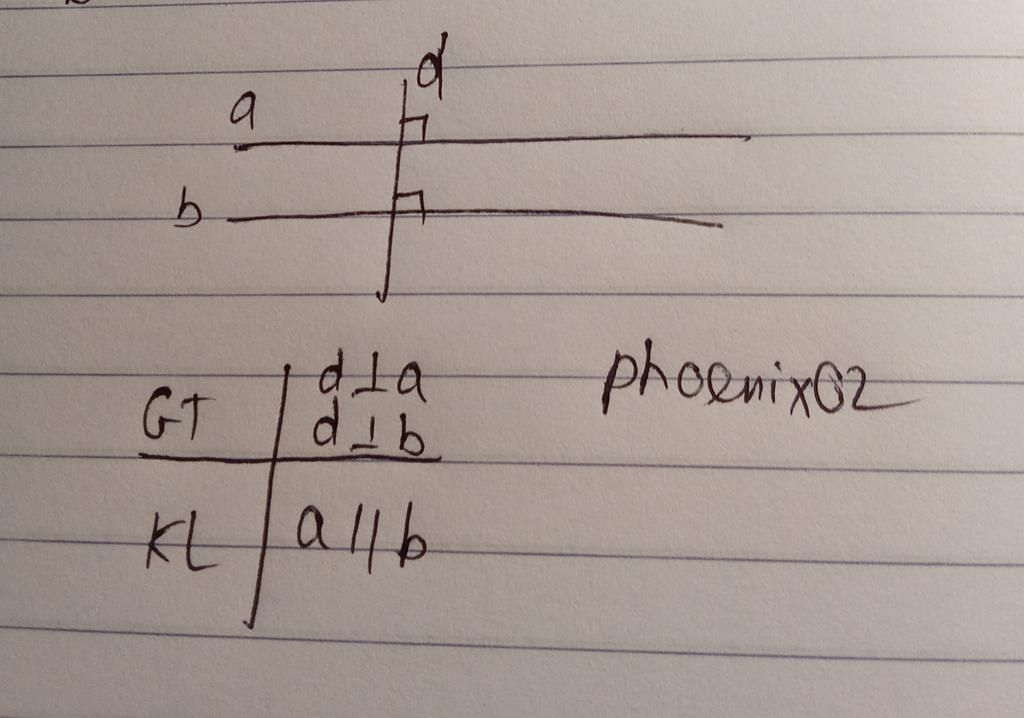 d
a
b
GT d⊥a
d⊥b
KL a//b
phoenix02